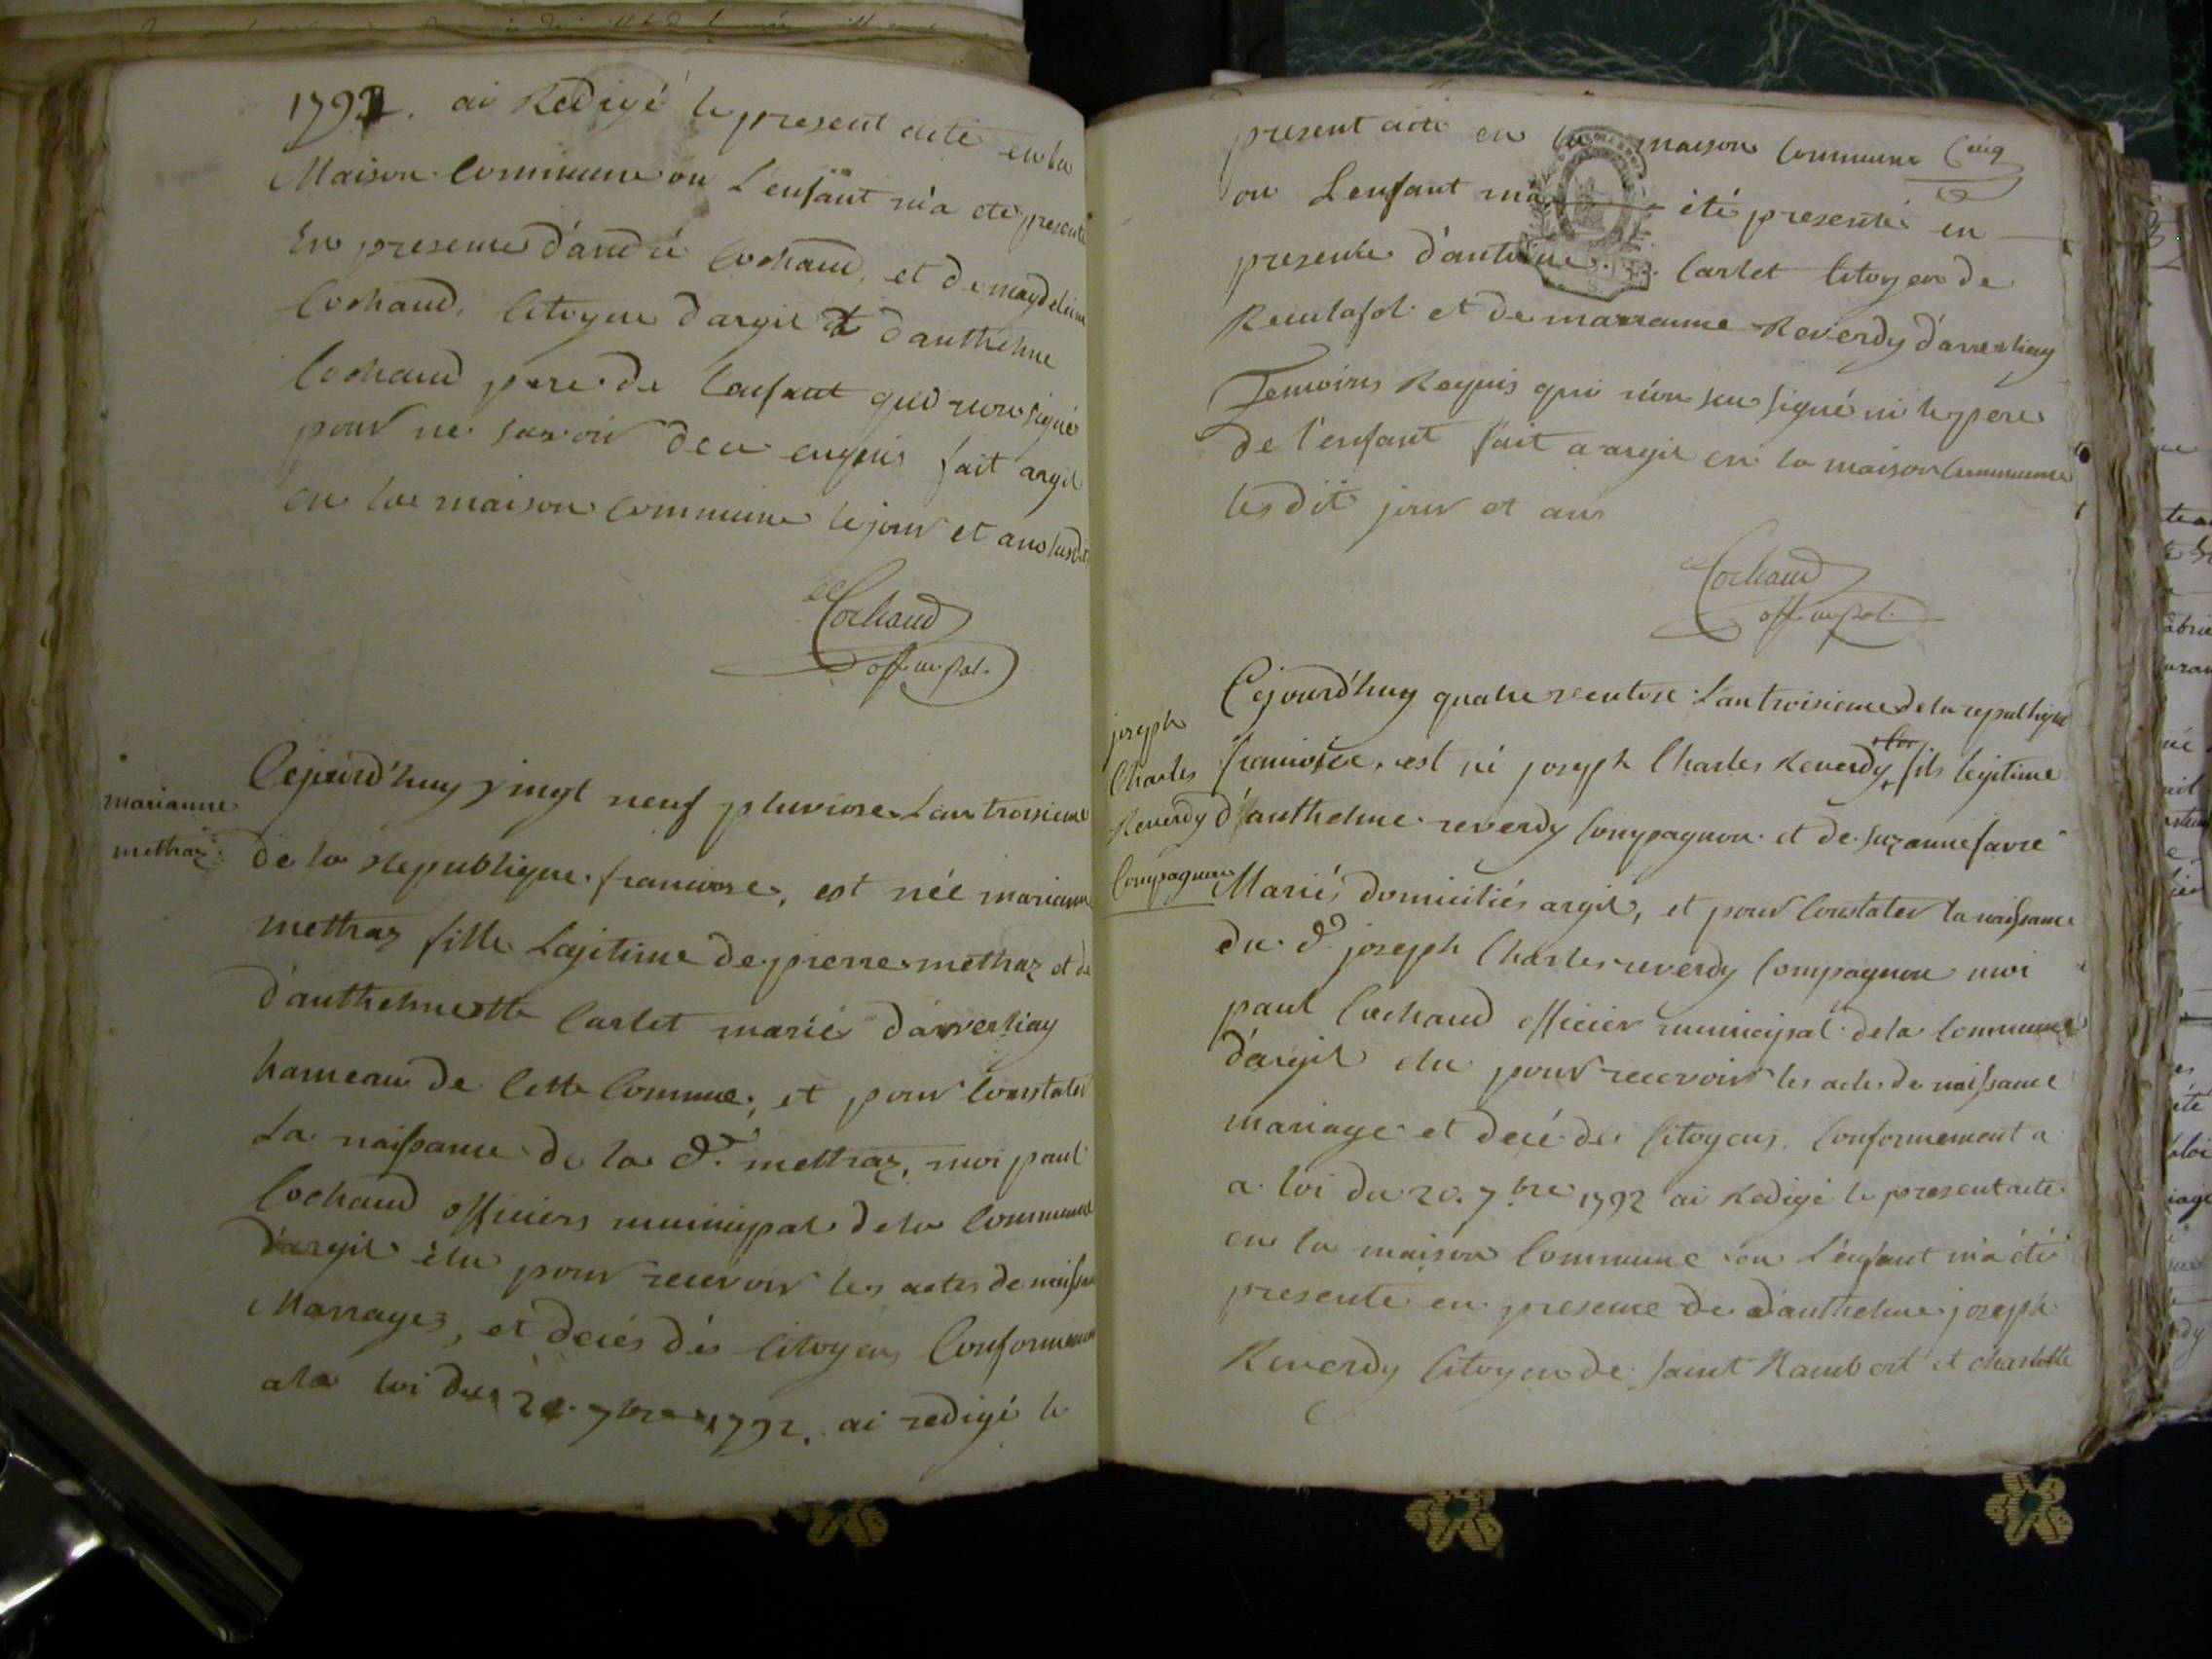 1792. ai Redigé le present acte en la
Maison Commune ou L'enfant m'a eté presenté
En presence d'andré Cochaud, et de magdeleine
Cochaud, Citoyen d'argil et d'anthelme
Cochaud pere de l'enfant qui non signé
pour ne savoir de ce enquis fait argil
en la maison Commune le jour et an susdit
Cochaud
off. mupal.
marianne
mettraz
Cejourd'huy vingt neuf pluviose L'an troisieme
de la Republique francoise, est née marianne
mettraz fille Legitime de pierre mettraz et de
d'anthelmette Carlet mariés d'averliay
hameau de Cette Commue, et pour Constater
La naissance de la d. mettraz, moi paul
Cochaud officiers municipal de la Commune
d'argil élu pour recevoir les actes de naissan
Marrages, et decés dés Citoyens Conformemen
a la loi du 20. 7bre 1792. ai redigé le
Cinq
present acte en la maison Commune
ou L'enfant m'a été presenté en
presence d'antoine Carlet Citoyen de
Reculafol et de marianne Reverdy d'averliay
Temoins Requis qui n'on seu signé ni le pere
de l'enfant fait a argil en la maison Commune
les dit jour et an
Cochaud
off. mupal.
joseph
Charles
Reverdy
Compagnon
Cejourd'huy quatre ventose L'an troisieme de la republique
francoise, est né joseph Charles Reverdy, fils legitime
d'anthelme reverdy Compagnon et de suzanne favre
Mariés domiciliés argil, et pour Constater la naissance
du d. joseph Charles reverdy Compagnon moi
paul Cochaud officier municipal de la Commune
d'argil elu pour recevoir les actes de naissance
mariage et decé des Citoyens Conformement a
a loi du 20. 7bre 1792 ai Redigé le present acte
en la maison Commune ou L'enfant m'a été
presenté en presence de d'anthelme joseph
Reverdy Citoyen de saint Rambert et charlotte